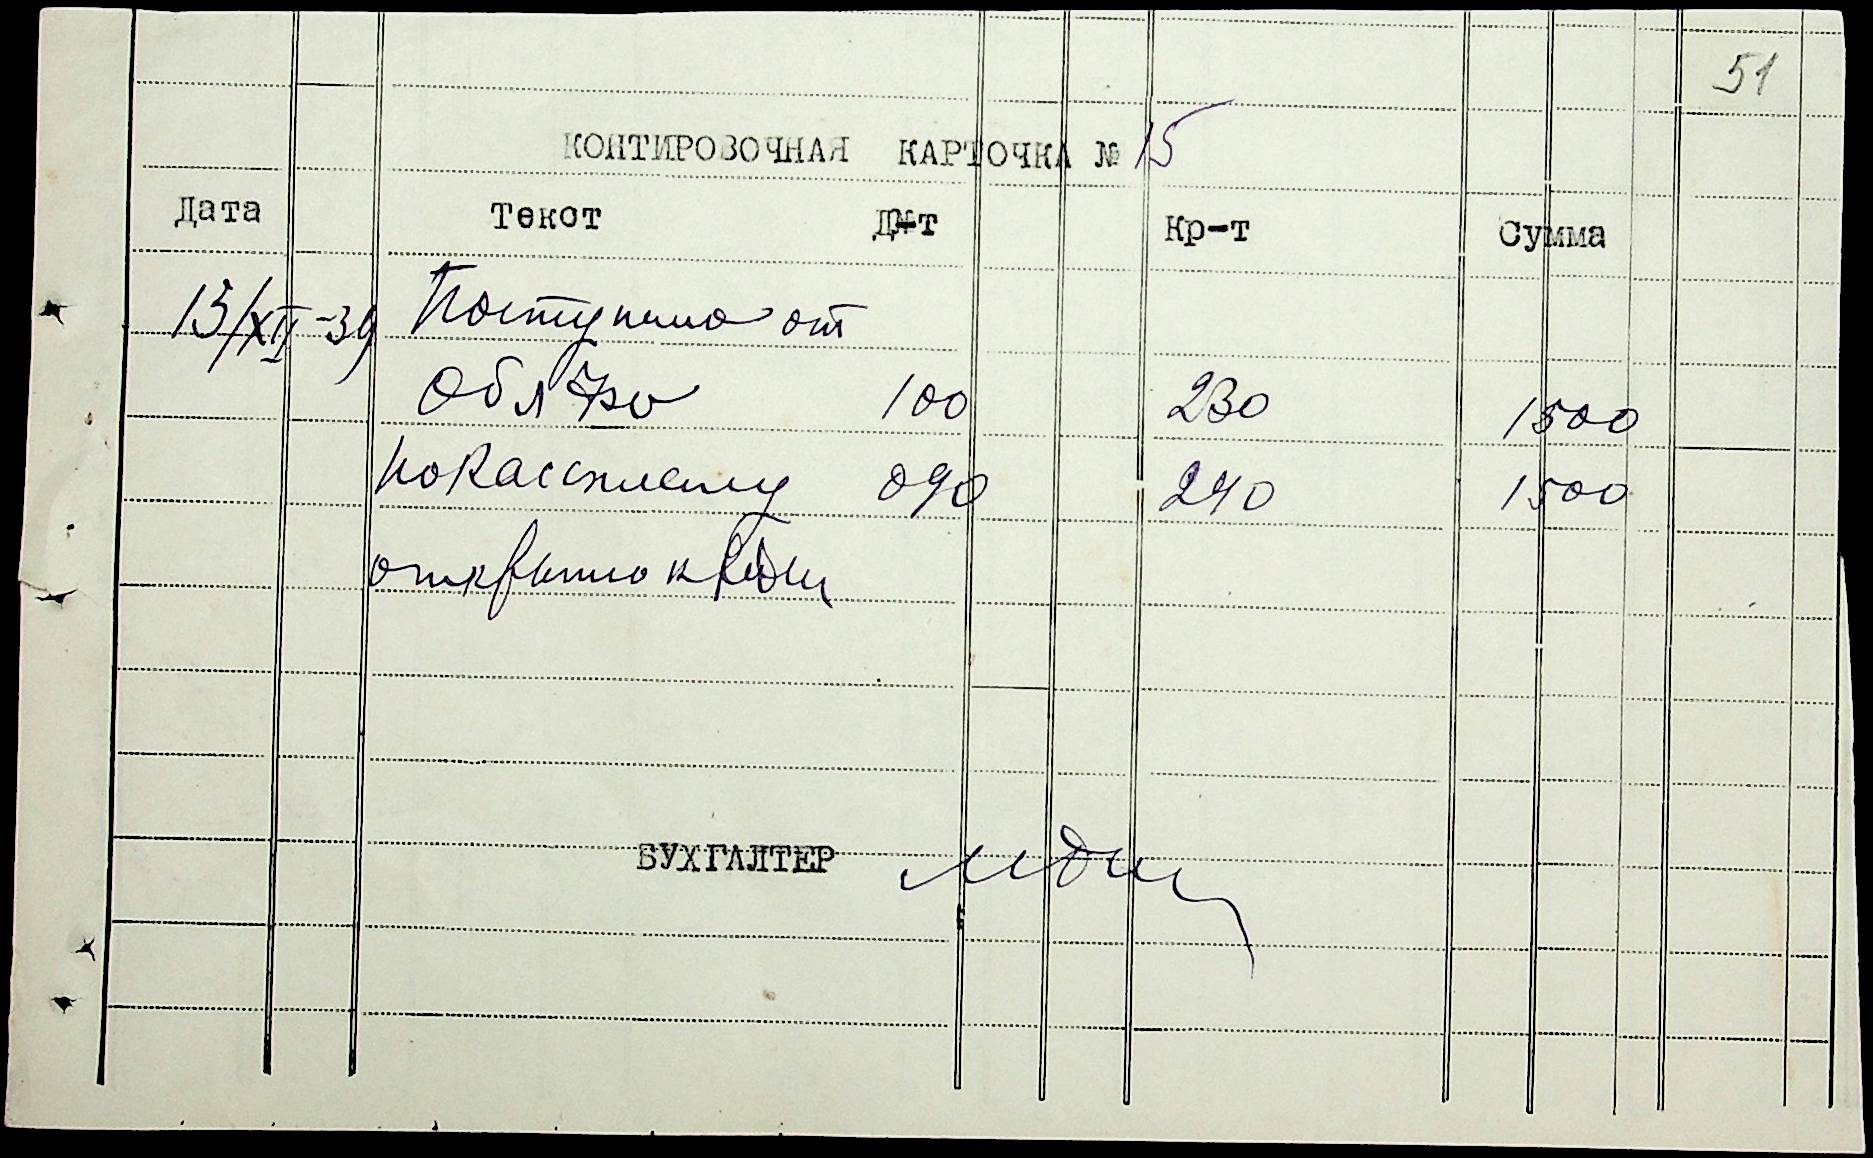 51
КОНТИРОВОЧНАЯ КАРТОЧКА № 15
Дата Текст Д-т Кр-т Сумма
15/XII-39 Поступило от
100 230 1500
090 240 1500
открыто
БУХГАЛТЕР